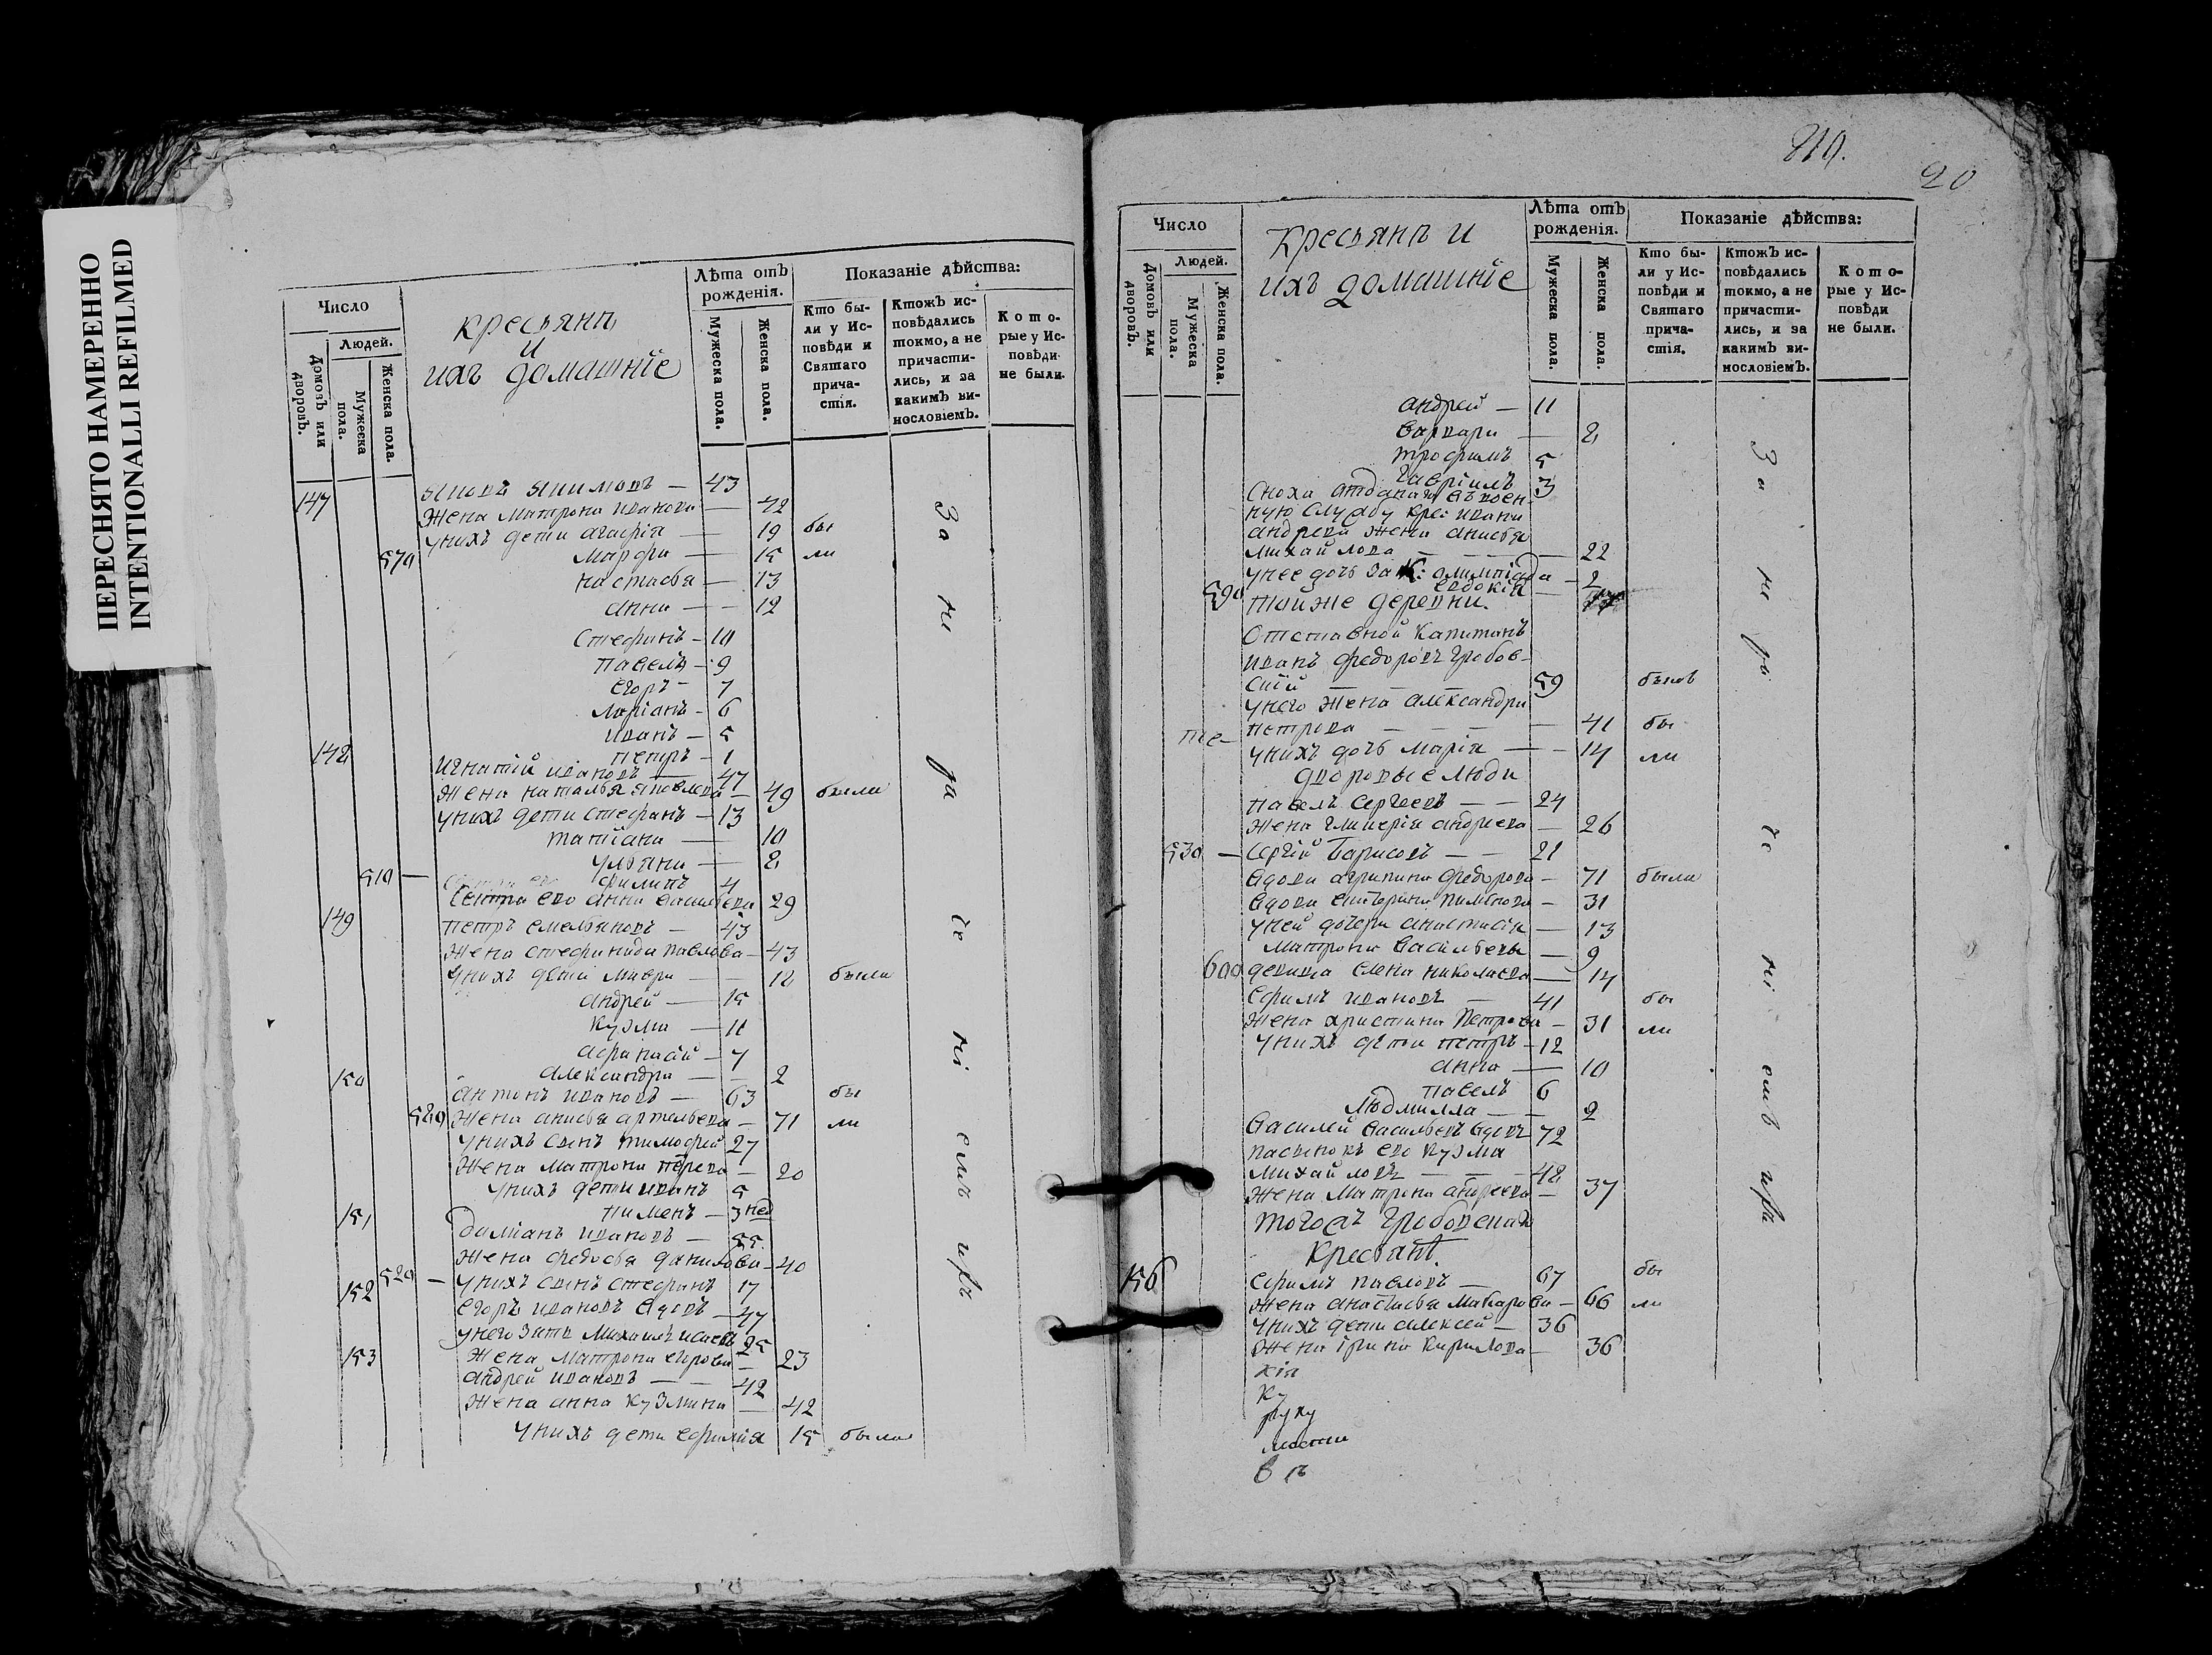 ПЕРЕСНЯТО НАМЕРЕННО
INTENTIONALLI REFILMED
Число
Людей.
Домовъ или дворовъ.
Мужеска пола.
Женска пола.
крестьянъ
и
ихъ домашніе
Лѣта отъ рожденія.
Мужеска пола.
Женска пола.
Показаніе дѣйства:
Кто были у Исповѣди и Святаго причастія.
Ктожъ исповѣдались токмо, а не причастились, и за какимъ винословіемъ.
Которые у Исповѣди не были.
147 Яковъ Якимовъ — 43
Жена Матрона Иванова — 42
у нихъ дети Агафія — 19 бы
Марфа — 15 ли
Настасья — 13
Анна — 12
Стефанъ — 10
Павелъ — 9
Егоръ — 7
Ларіанъ — 6
Иванъ — 5
Петръ — 1
142 Игнатій Ивановъ — 47
Жена Наталья Яковлева — 49 были
у нихъ дети Стефанъ — 13
Татіана — 10
Ульяна — 2
510 — Филипъ 4
Сестра ево Анна 29
149 Петръ Емельяновъ — 43
Жена Стефанида Павлова — 43
у нихъ дети Мавра — 12 были
Андрей — 15
Кузма — 11
Афанасій — 7
Александра — 2
150 Антонъ Ивановъ — 63 бы
Жена Анисья Артемьева — 71 ли
у нихъ сынъ Тимофей 27
Жена Матрона — 20
у нихъ дети Иванъ 5
Пименъ — 3 нед
151 Даміанъ Ивановъ — 55
Жена Федосья Данилова — 40
520 — у нихъ сынъ Стефанъ 17
152 Егоръ Ивановъ вдовъ — 47
у него зять Михаилъ 25
Жена Матрона Егорова — 23
153 Андрей Ивановъ — 42
Жена Анна Кузмина — 42
у нихъ дети Ефимія 15 были
819.
20
Число
Людей.
Домовъ или дворовъ.
Мужеска пола.
Женска пола.
Крестьянъ и
ихъ домашніе
Лѣта отъ рожденія.
Мужеска пола.
Женска пола.
Показаніе дѣйства:
Кто были у Исповѣди и Святаго причастія.
Ктожъ исповѣдались токмо, а не причастились, и за какимъ винословіемъ.
Которые у Исповѣди не были.
Андрей — 11
Варвара — 2
Трофимъ 5
Гавріилъ 3
Сноха отданаго въ воен-
ную службу крес Ивана
Андреева жена Анисья
Михайлова — 22
у нее дочь Олимпіада — 2
Евдокія —
590 Той же деревни.
Отставной Капитанъ
Иванъ Федоровъ Гробов-
скій — 59 былъ
у него жена Александра
Петрова — 41 бы
у нихъ дочь Марія — 14 ли
Дворовые люди
Павелъ Сергеевъ — 24
Жена Гликерія Андреева — 26
530 — Сергій Барисовъ — 21
Вдова Агрипина Федорова — 71 были
Вдова — 31
у ней дочери Анастасія — 13
Матрона Васильевы — 9
600 девица Елена Николаева — 14
Ефимъ Ивановъ — 41 бы
Жена Христина Петрова — 31 ли
у нихъ дети Петръ — 12
Анна — 10
Павелъ 6
Людмилла — 2
Василей Васильевъ вдовъ 72
пасынокъ ево Кузма
Михайловъ — 42
Жена Матрона Андреева — 37
Тогожъ Гробовскаго
Крестьянѣ.
156 Ефимъ Павловъ — 67 бы
Жена Анастасья Макарова — 66 ли
у нихъ дети Алексей — 36
Жена Ірина Кирилова — 36
кія
ку
руку